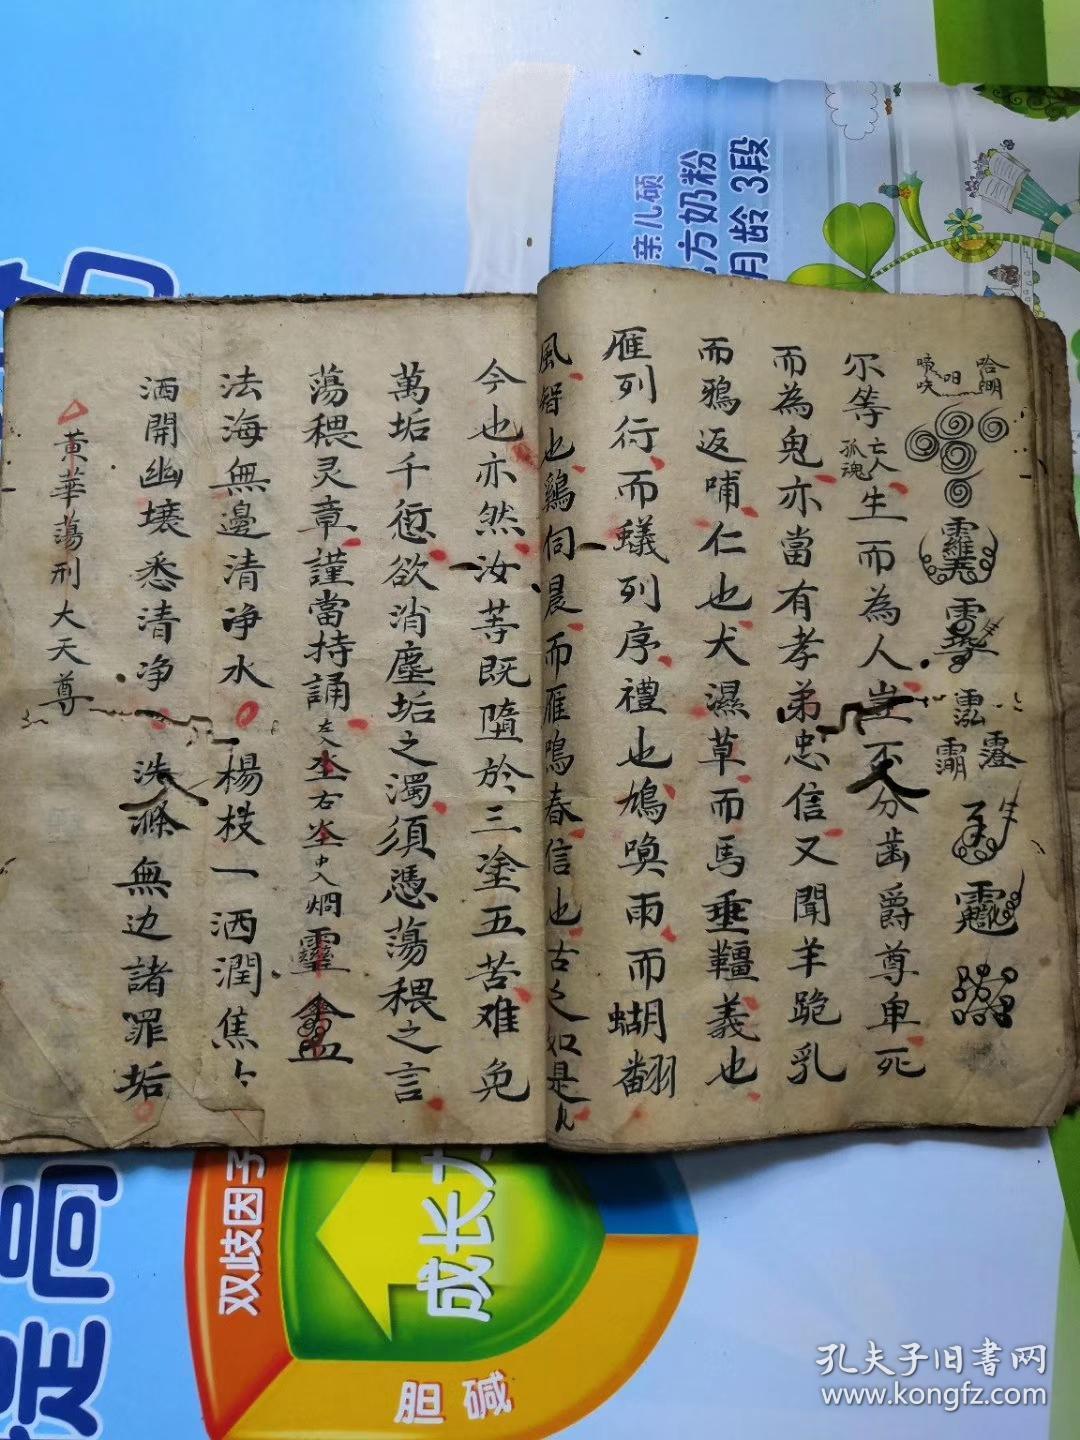 哈
尔等亡人孤魂生而為人豈不分齒爵尊卑死
而為鬼亦當有孝弟忠信又聞羊跪乳
而鴉返哺仁也犬濕草而馬垂韁義也
雁列行而蟻列序禮也鳩喚雨而蝴翻
風智也鷄伺晨而雁鳴春信也古之如是
今也亦然汝等既墮於三塗五苦难免
萬垢千愆欲消塵垢之濁須憑蕩穢之言
蕩穢灵章謹當持誦
法海無邊清净水 楊枝一洒潤焦
洒開幽壤悉清净 洗滌無边諸罪垢
黃華蕩刑大天尊
亲儿硕
方奶粉
月龄 3段
双歧因子
成长
胆碱
孔夫子旧書网
www.kongfz.com